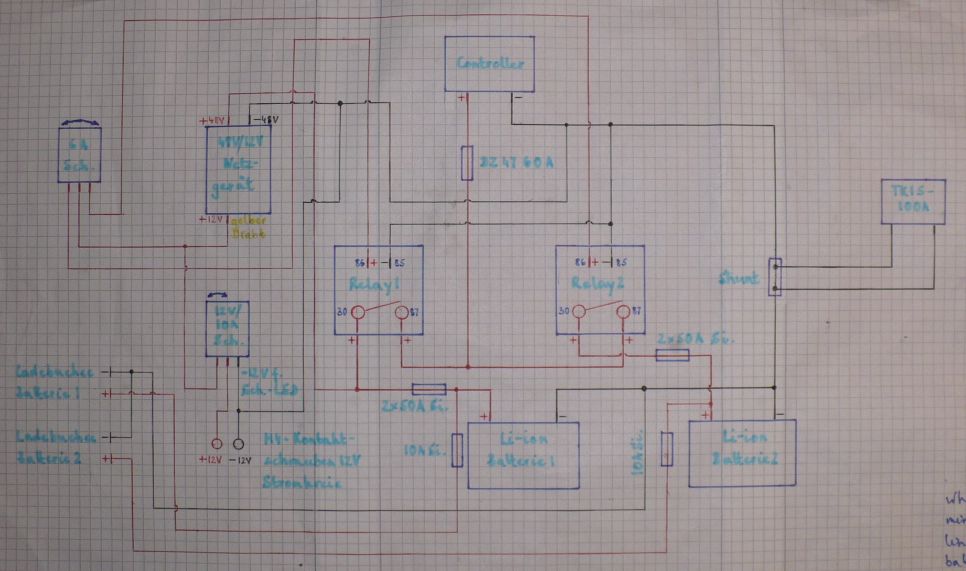 Controller
+ -
+48V -48V
6A
Sch.
48V/12V
Netz-
gerät
+12V gelber
Draht
DZ47 60A
TK15-
100A
86 + - 85
Relay1
30 87
+ +
86 + - 85
Relay2
30 87
+ +
Shunt
12V/
10A
Sch.
-12V f.
Sch.-LED
2x50A Si.
2x50A Si.
Ladebuchse -
Batterie 1 +
Ladebuchse -
Batterie 2 +
+12V -12V
Stromkreis
10A Si.
+ -
Li-ion
Batterie 1
10A Si.
+ -
Li-ion
Batterie 2